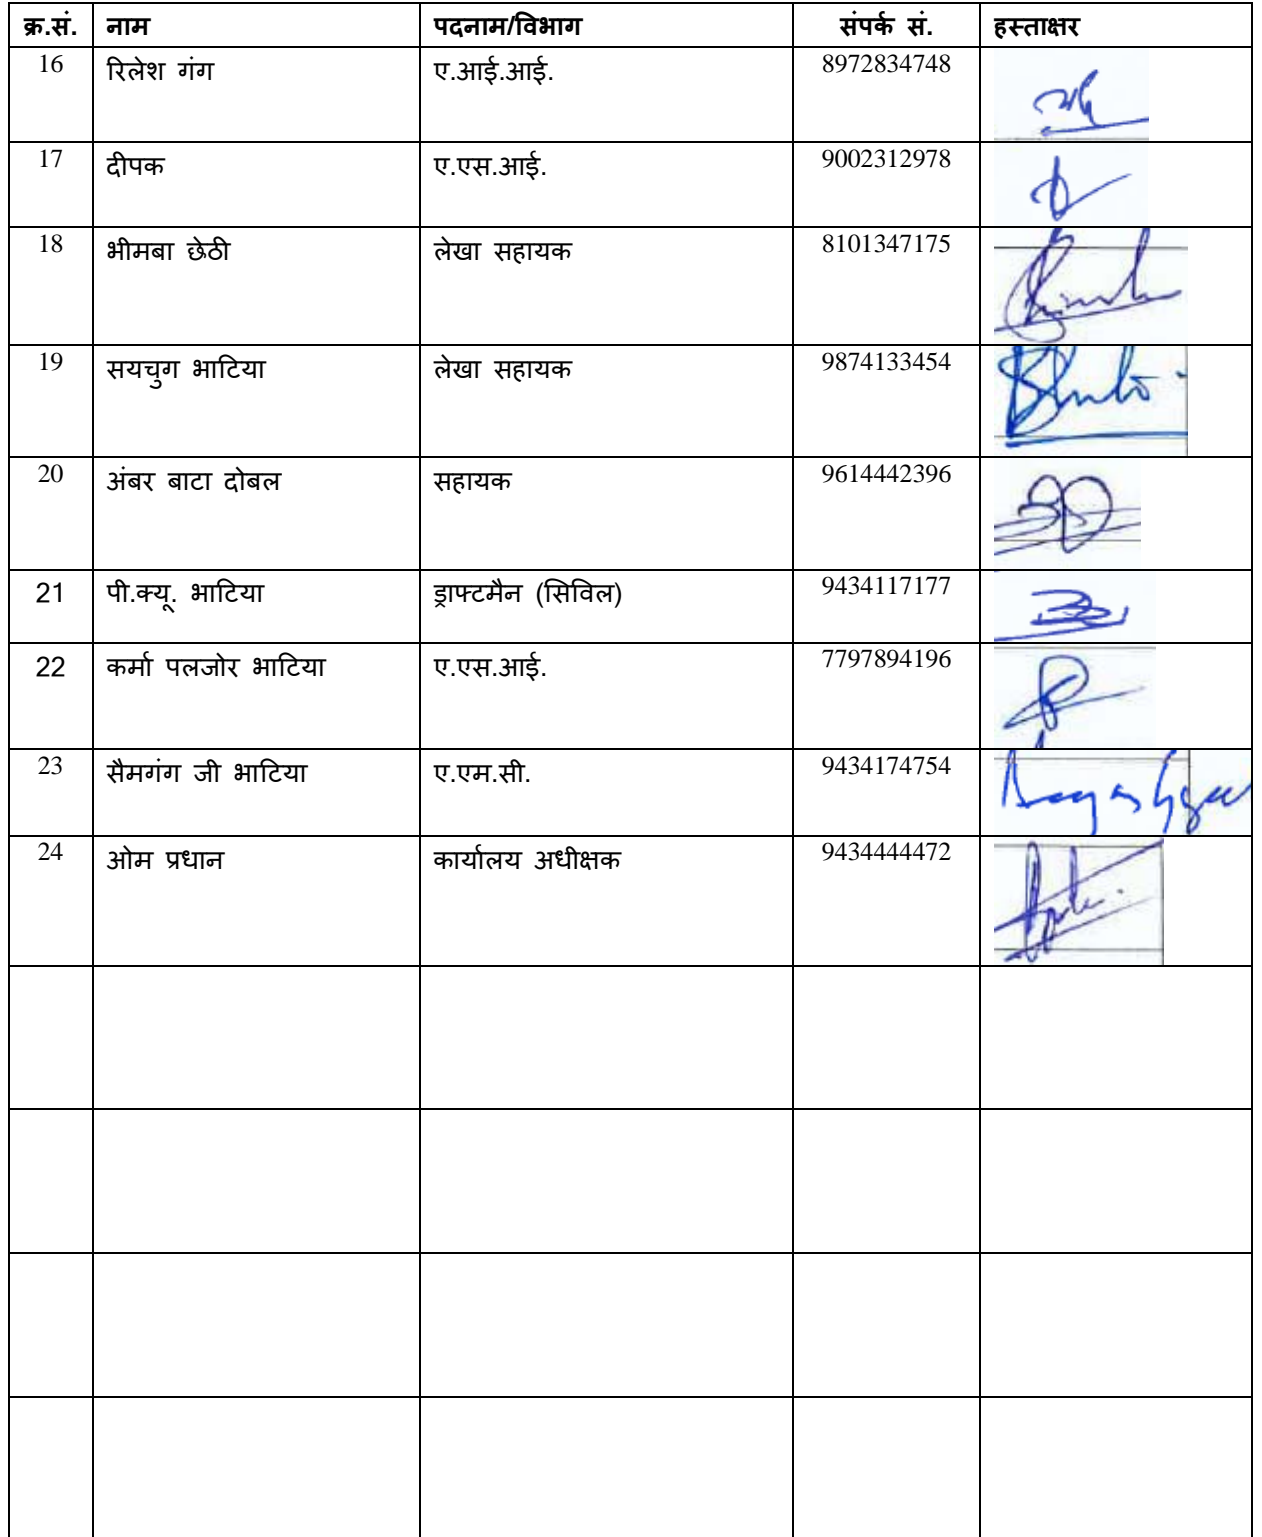 क्र.सं. नाम पदनाम/विभाग संपर्क सं. हस्ताक्षर
16 रिलेश गंग ए.आई.आई. 8972834748
17 दीपक ए.एस.आई. 9002312978
18 भीमबा छेठी लेखा सहायक 8101347175
19 सयचुग भाटिया लेखा सहायक 9874133454
20 अंबर बाटा दोबल सहायक 9614442396
21 पी.क्यू. भाटिया ड्राफ्टमैन (सिविल) 9434117177
22 कर्मा पलजोर भाटिया ए.एस.आई. 7797894196
23 सैमगंग जी भाटिया ए.एम.सी. 9434174754
24 ओम प्रधान कार्यालय अधीक्षक 9434444472